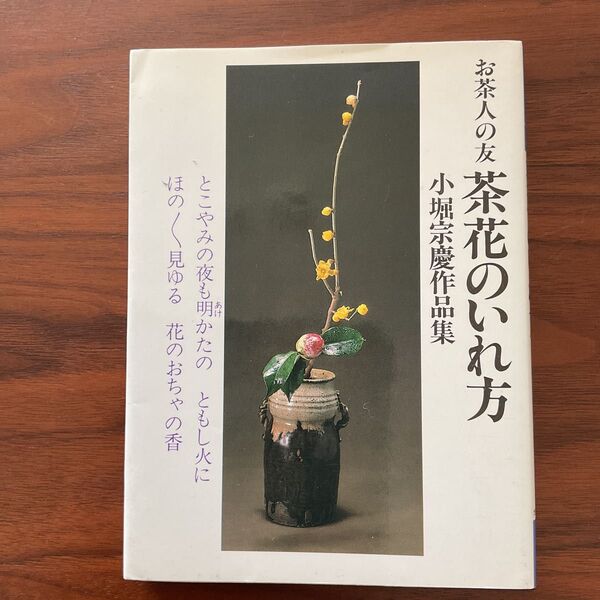 お茶人の友
茶花のいれ方
小堀宗慶作品集
とこやみの夜も明かたの　ともし火に
あけ
ほの〱見ゆる　花のおちゃの香